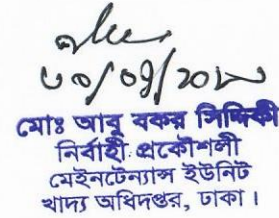 মোঃ আবু বকর সিদ্দিকী
নির্বাহী প্রকৌশলী
মেইনটেন্যান্স ইউনিট
খাদ্য অধিদপ্তর, ঢাকা।